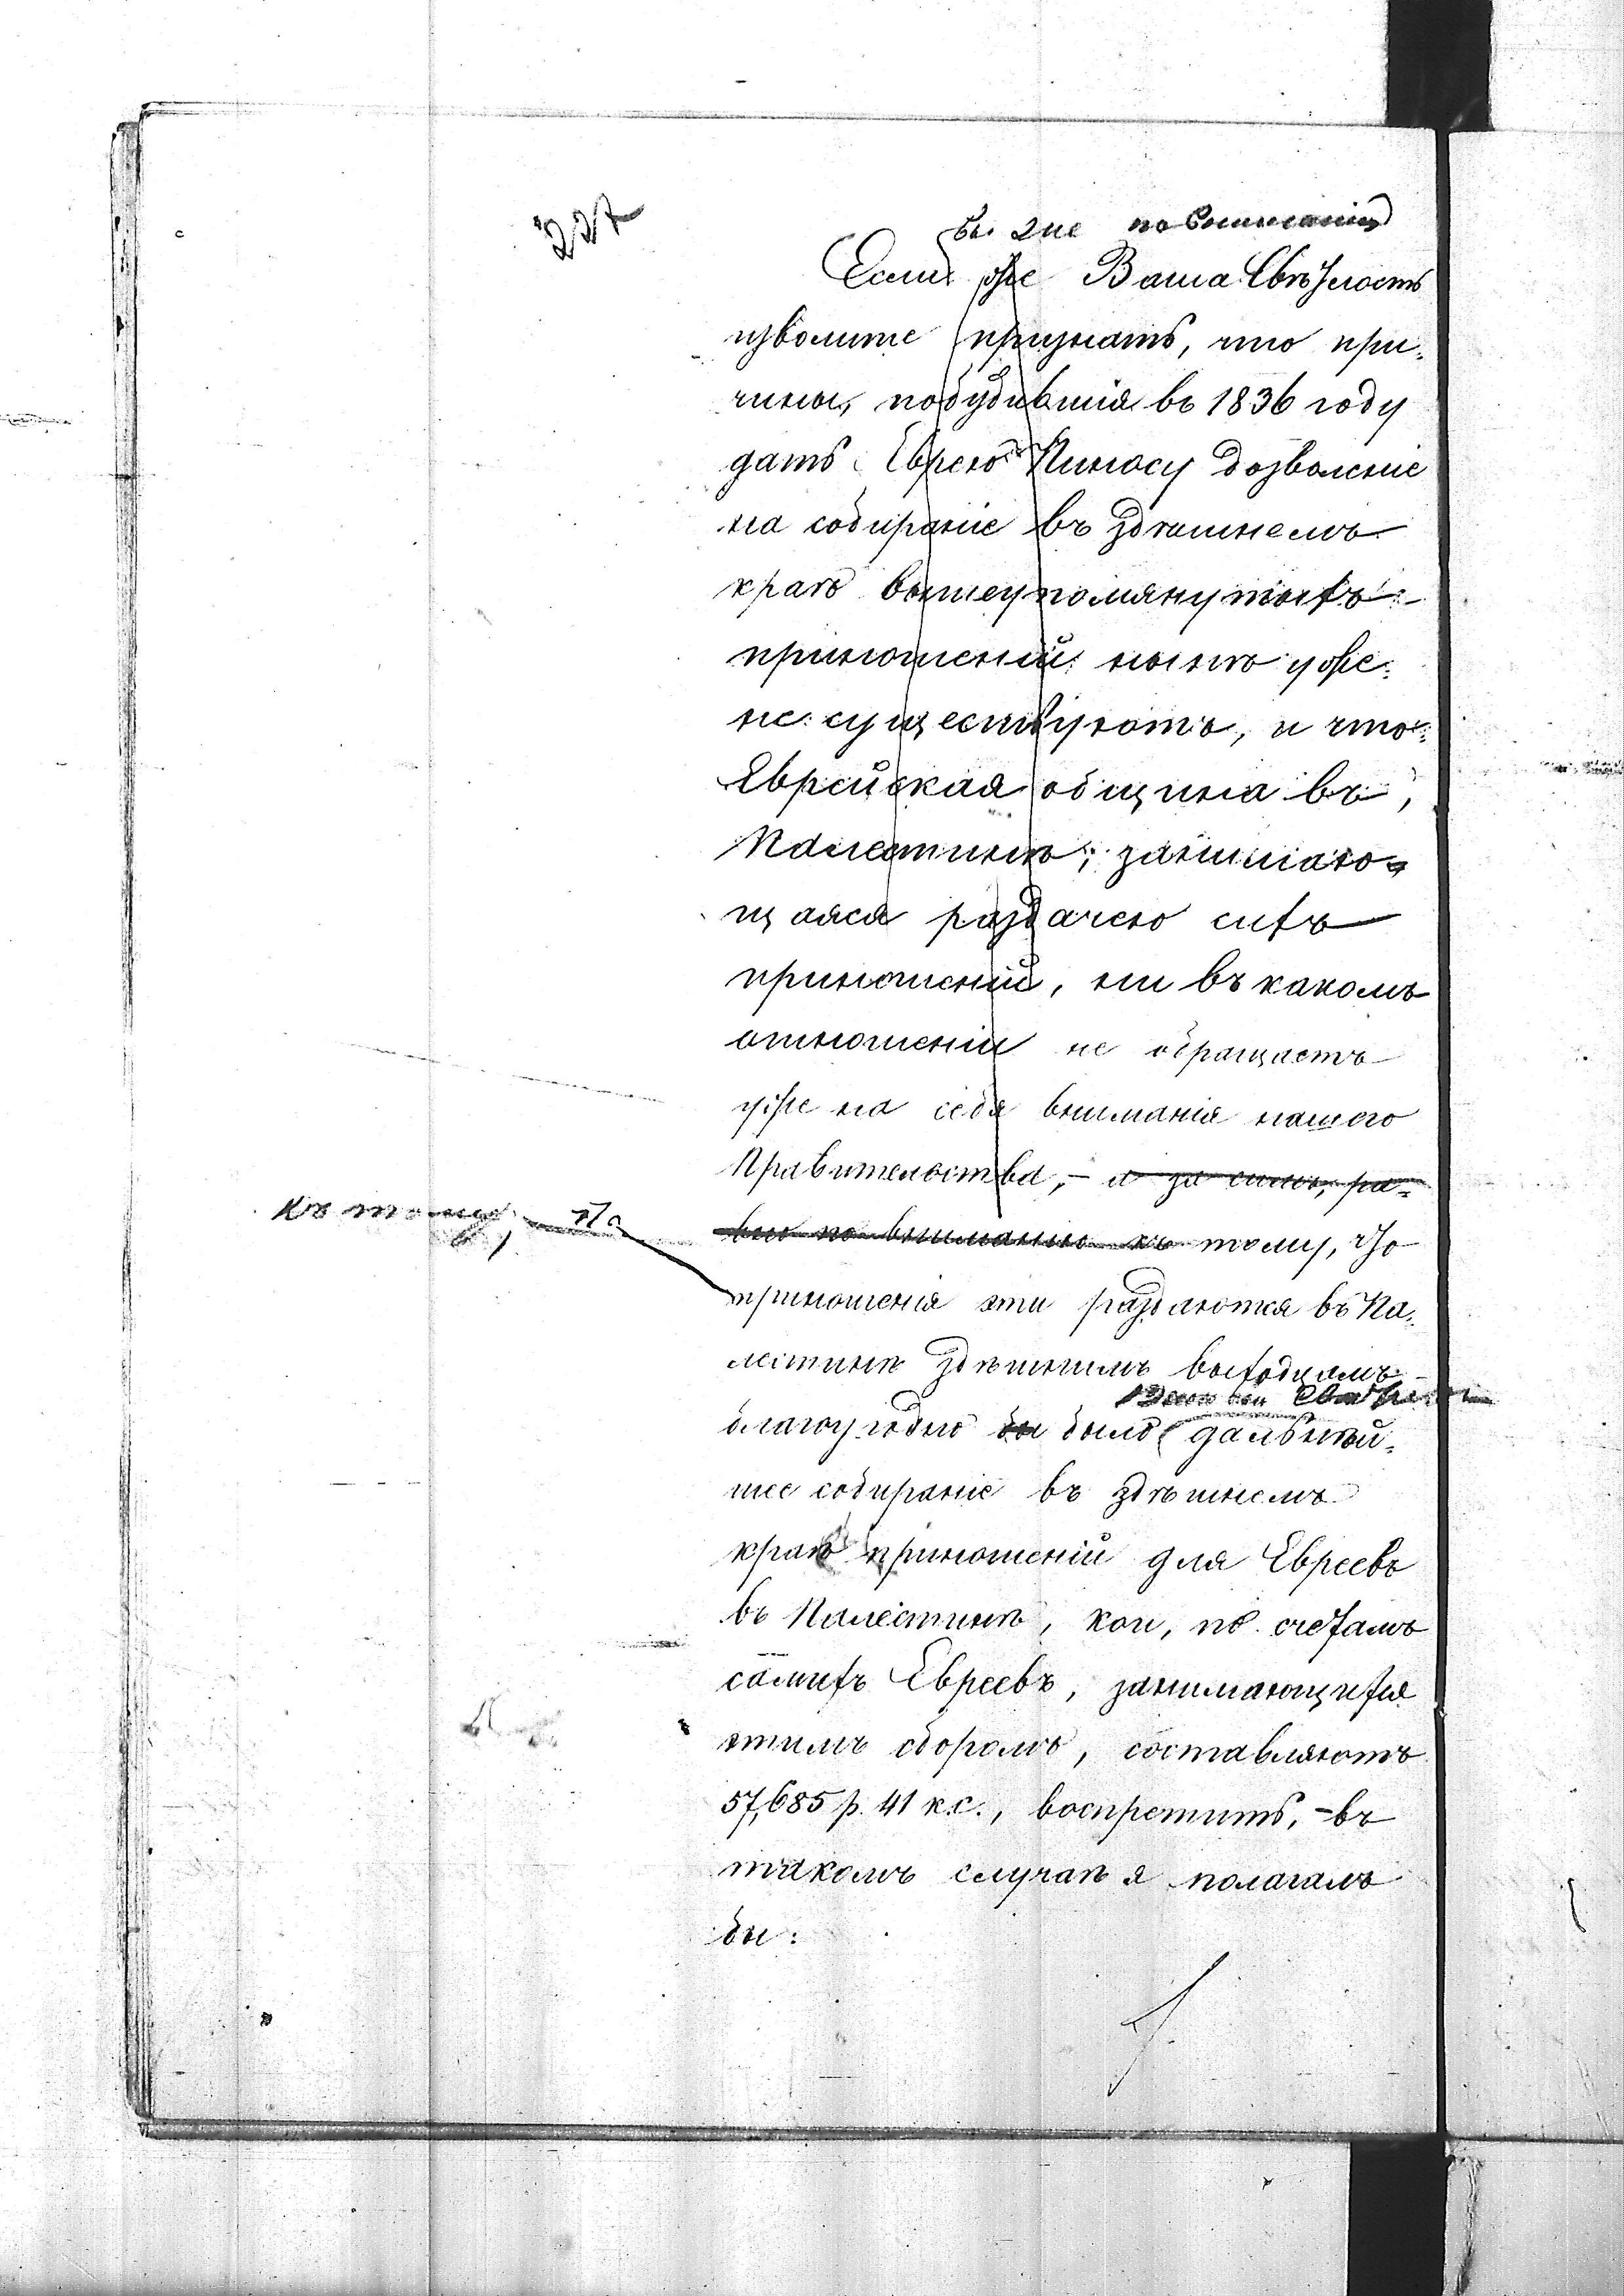 227
бы же по вниманію
Если же Ваша Свѣтлость
изволите признать, что при-
чины, побудившія въ 1836 году
дать Еврею Пиносу дозволеніе
на собираніе въ здѣшнемъ
краѣ вышеупомянутыхъ
приношеній нынѣ уже
не существуютъ, и что
Еврейская община въ
Палестинѣ, занимаю-
щаяся раздачею сихъ
приношеній, ни въ какомъ
отношеніи не обращаетъ
уже на себя вниманія нашего
Правительства, - а за симъ, ра-
вно по вниманію къ тому, что
къ тому,
приношенія эти раздаются въ Па-
лестинѣ здѣшнимъ выходцамъ
благоугодно бы было дальнѣй-
шее собираніе въ здѣшнемъ
краѣ приношеній для Евреевъ
въ Палестинѣ, кои, по счетамъ
самихъ Евреевъ, занимающихся
этимъ сборомъ, составляютъ
57,685 р. 41 к.с., воспретить, - въ
такомъ случаѣ я полагалъ
бы: